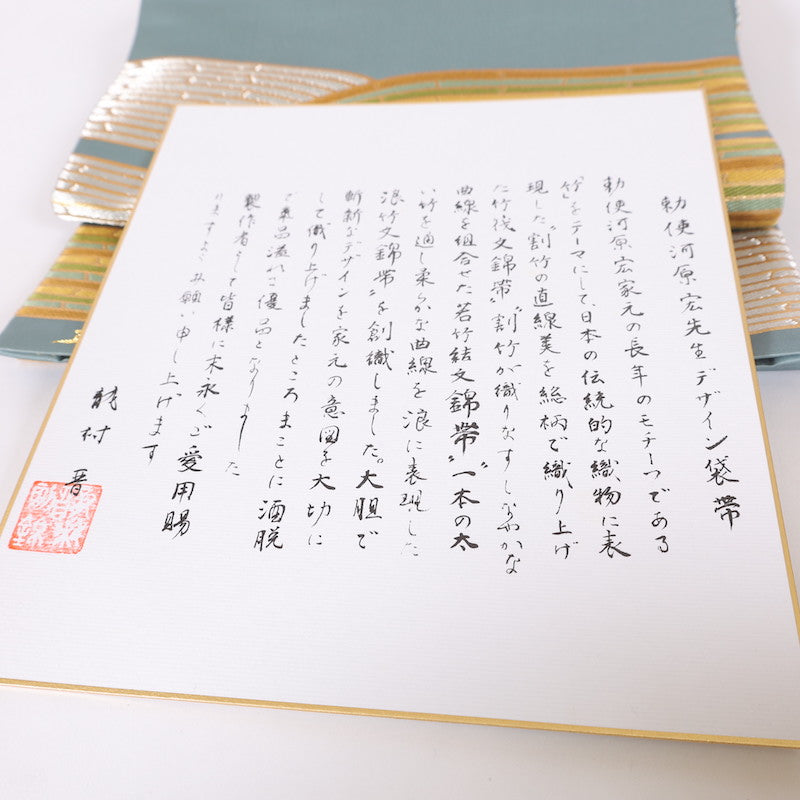 勅使河原宏先生デザイン袋帯
勅使河原宏家元の長年のモチーフである
「竹」をテーマにして、日本の伝統的な織物に表
現した“割竹の直線美を総柄で織り上げ
た竹筏文錦帯”“割竹が織りなすしなやかな
曲線を組合せた若竹結文錦帯”“一本の太
い竹を通し柔らかな曲線を浪に表現した
浪竹文錦帯”を創織しました。大胆で
斬新なデザインを家元の意図を大切に
して織り上げましたところまことに洒脱
で気品溢れる優品となりました
製作者として皆様に末永くご愛用賜
りますようお願い申し上げます
龍村 晋